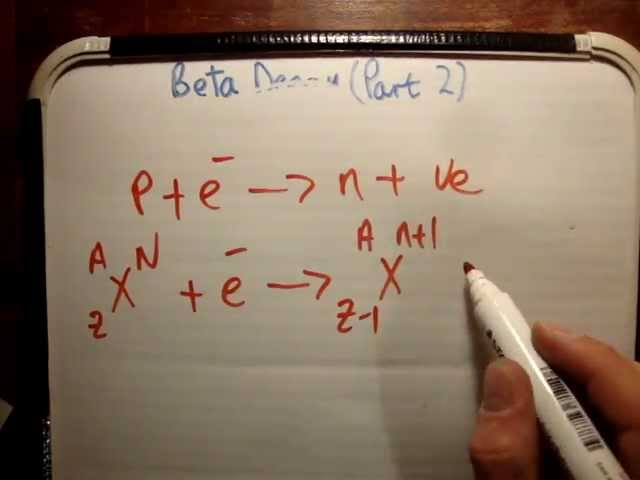 Beta Decay (Part 2)
p + e⁻ → n + νe
A X N Z + e⁻ → A X n+1 Z-1